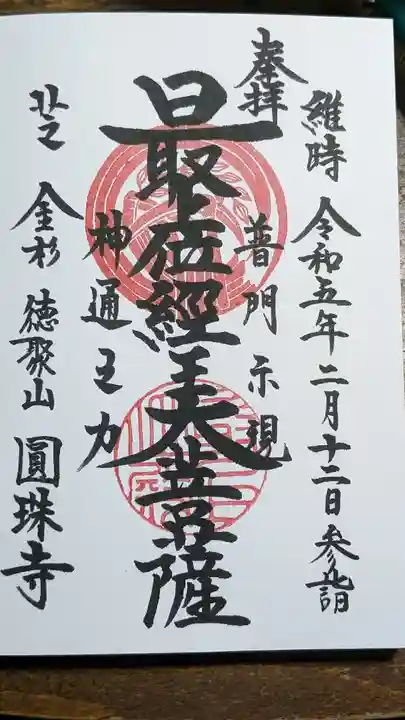 奉拝
維時 令和五年二月十二日 参詣
普門示現
最上位經王大菩薩
神通之力
芝 金杉 徳聚山 圓珠寺